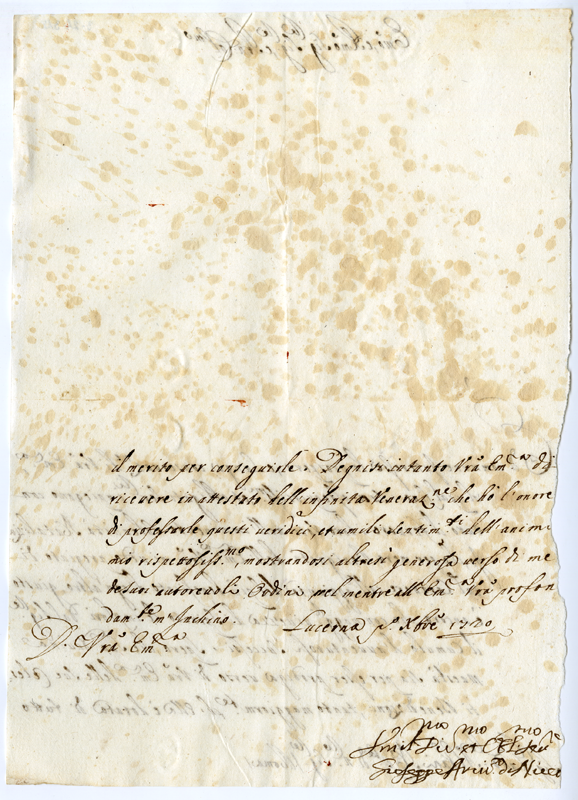 il merito per conseguirle. Degnisi intanto Vrã Em.ª di
ricevere in attestato dell'infinita Veneraz.ne che hò l'onore
di professarle questi veridici, et umili sentim.ti dell'animo
mio rispettosiss.mo, mostrandosi altresi generosa verso di me
de suoi autorevoli Ordini, nel mentre all'Em.ª Vrã profon
dam.te m'Inchino. Lucerna p.º Xbre 1740
D. Vrã Em.ª
Umil.mo Div.mo et Obl.mo Ser.e
Giuseppe Arciv.º di Nicea